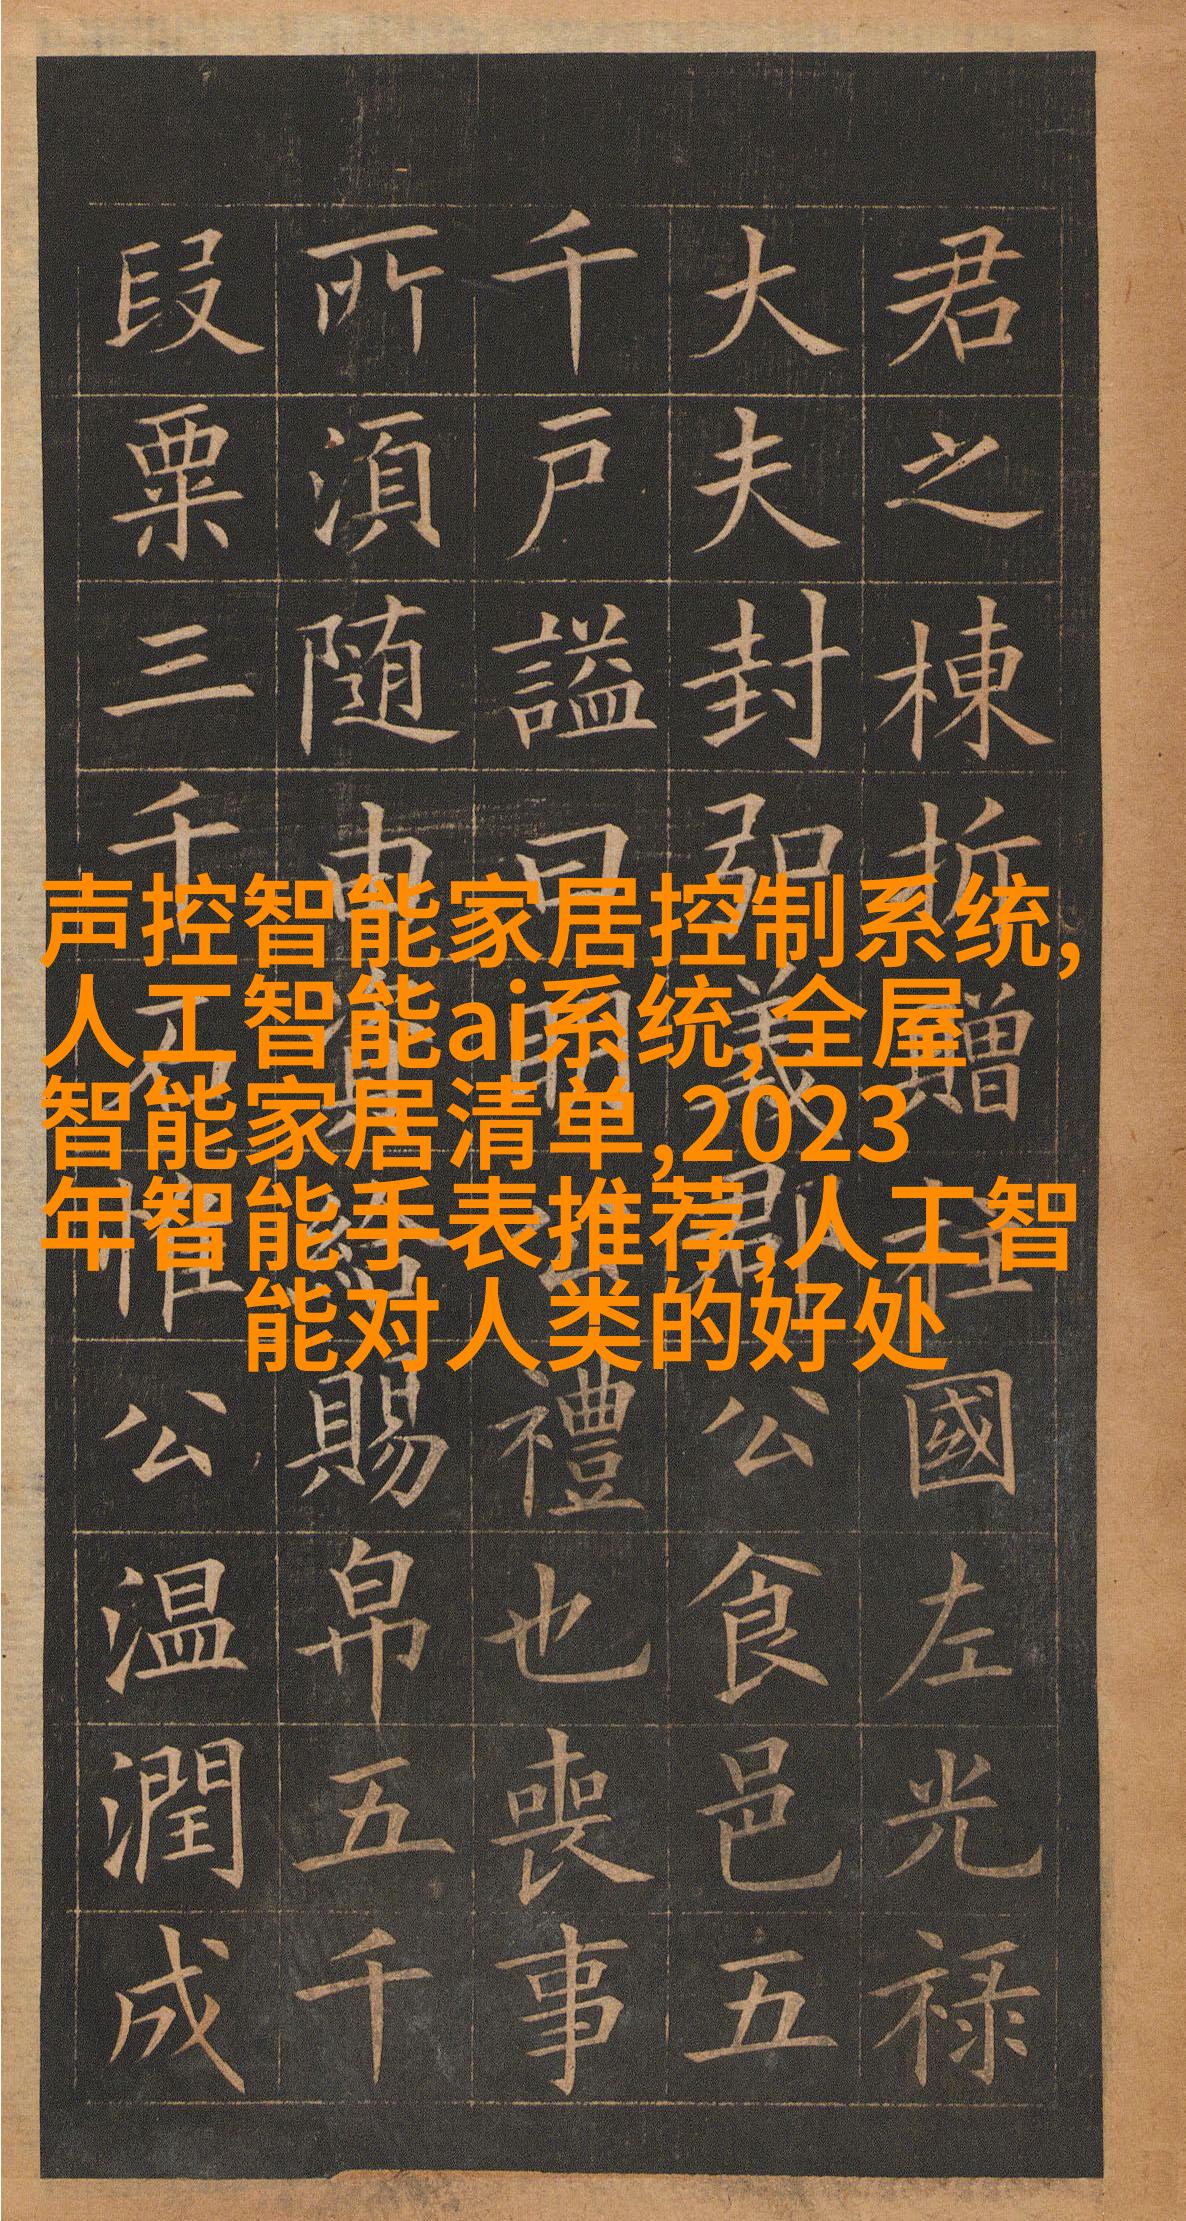 君之棟折贈柱國左光禄
大夫封弘義郡公食邑五
千戶謚曰明公禮也喪事
所須随由資給賜帛五千
段粟三千石惟公温潤成
声控智能家居控制系统,
人工智能ai系统,全屋
智能家居清单,2023
年智能手表推荐,人工智
能对人类的好处